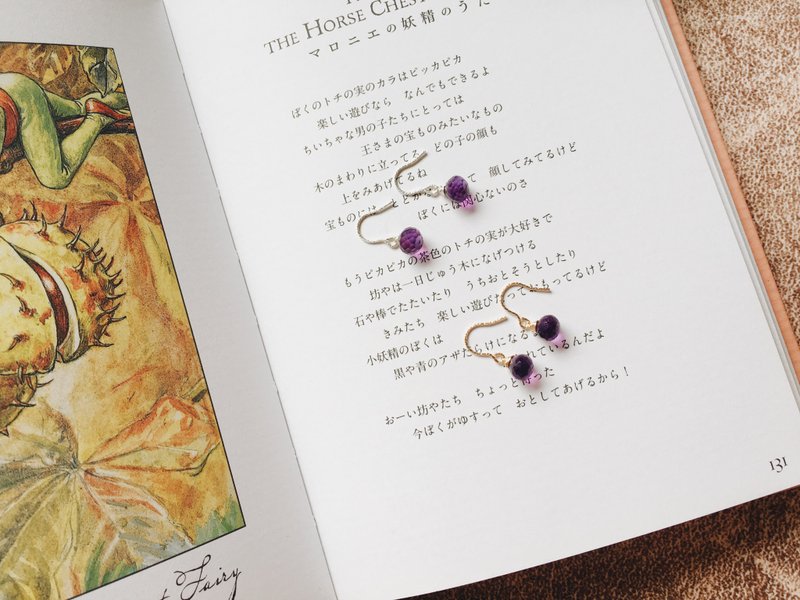 THE HORSE CHEST
マロニエの妖精のうた
ぼくのトチの実のカラはピッカピカ
楽しい遊びなら なんでもできるよ
ちいちゃな男の子たちにとっては
王さまの宝ものみたいなもの
木のまわりに立ってる どの子の顔も
上をみあげてるね
宝ものには て 顔してみてるけど
ぼくには 心ないのさ
もうピカピカの茶色のトチの実が大好きで
坊やは一日じゅう木になげつける
石や棒でたたいたり うちおとそうとしたり
きみたち 楽しい遊びだっておもってるけど
小妖精のぼくは
黒や青のアザだらけになる れているんだよ
おーい坊やたち ちょっと待った
今ぼくがゆすって おとしてあげるから！
131
Fairy